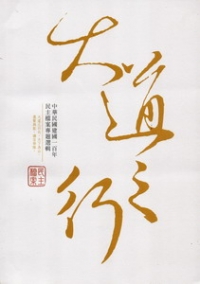 大道之行
中華民國建國一百年
民主檔案專題選輯
民主
檔案